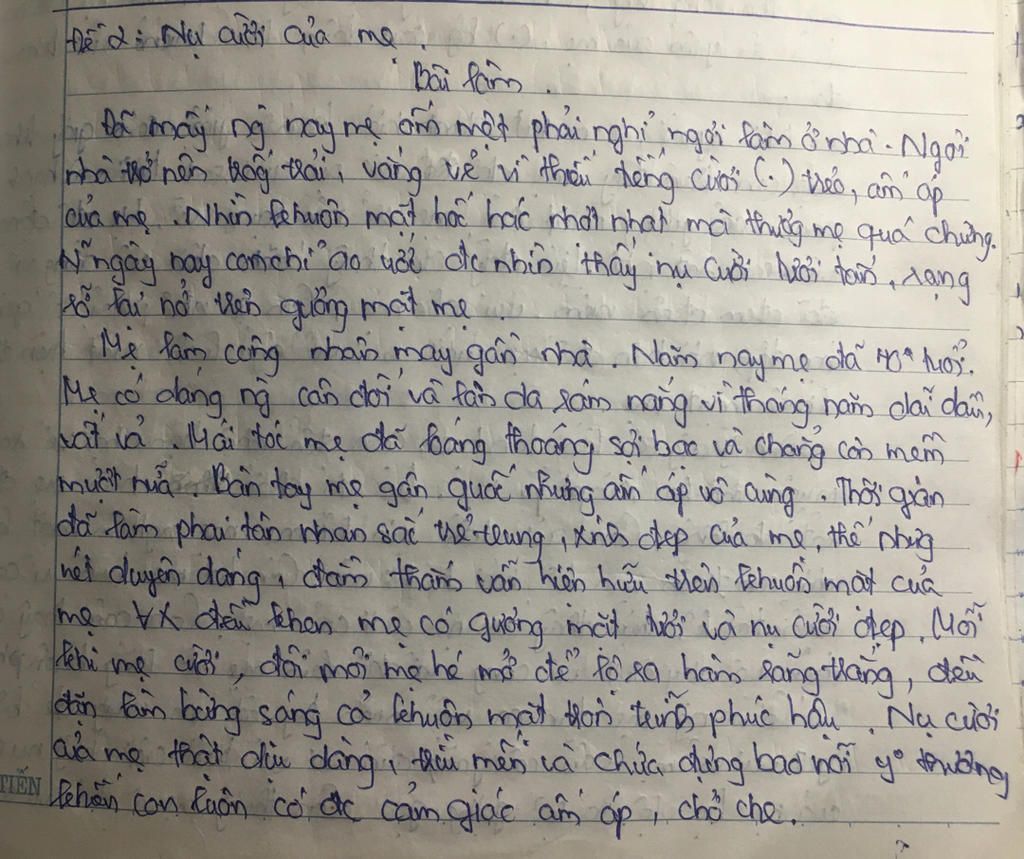 Đề 2: Nụ cười của mẹ.
Bài làm.
Đã mấy ng nay mẹ ốm mệt phải nghỉ ngơi làm ở nhà. Ngôi
nhà trở nên trống trải, vắng vẻ vì thiếu tiếng cười (.) trẻo, ấm áp
của mẹ. Nhìn khuôn mặt hốc hác nhợt nhạt mà thương mẹ quá chừng.
N~ ngày nay con chỉ ao ước đc nhìn thấy nụ cười tươi tắn, rạng
rỡ lại nở trên gương mặt mẹ
Mẹ làm công nhân may gần nhà. Năm nay mẹ đã tuổi.
Mẹ có dáng ng cân đối và làn da rám nắng vì tháng năm dãi dầu,
vất vả. Mái tóc mẹ đã loáng thoáng sợi bạc và chẳng còn mềm
mượt nữa. Bàn tay mẹ gân guốc nhưng ấm áp vô cùng. Thời gian
đã làm phai tàn nhan sắc trẻ trung, xinh đẹp của mẹ, thế nhưng
nét duyên dáng, đằm thắm vẫn hiện hữu trên khuôn mặt của
mẹ ∀X đều khen mẹ có gương mặt tươi và nụ cười đẹp. Mỗi
khi mẹ cười, đôi môi mẹ hé mở để lộ ra hàm răng trắng, đều
đặn làm bừng sáng cả khuôn mặt tròn trịnh phúc hậu. Nụ cười
của mẹ thật dịu dàng, trìu mến và chứa đựng bao nỗi y° thương
khiến con luôn có đc cảm giác ấm áp, chở che.
TIẾN